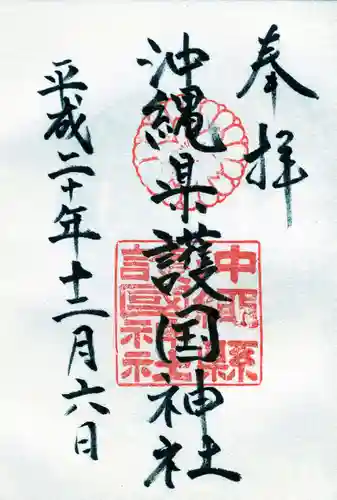 奉拝
沖縄県護国神社
平成二十年十二月六日